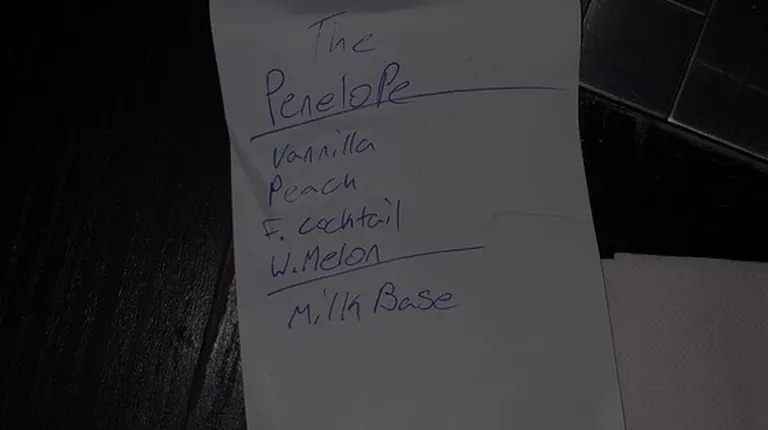 The
Penelope
Vannilla
Peach
F. Cocktail
W. Melon
Milk Base